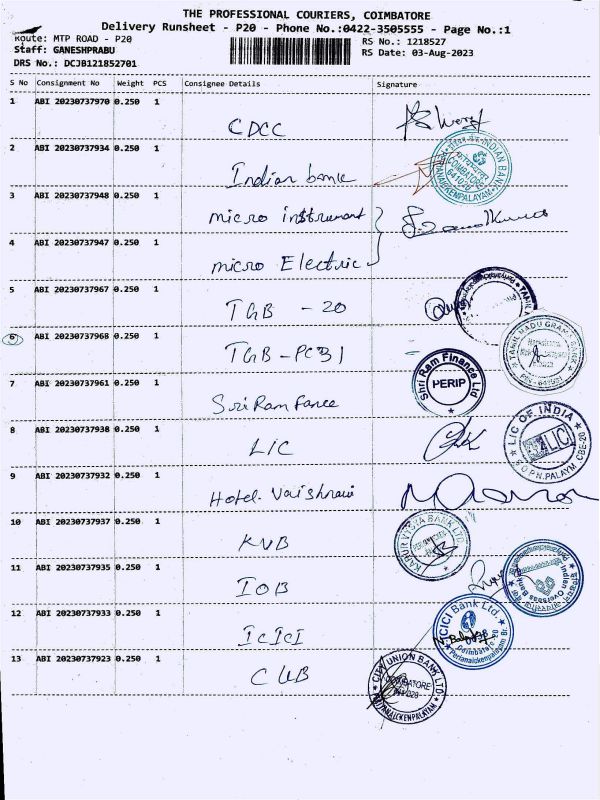 THE PROFESSIONAL COURIERS, COIMBATORE
Delivery Runsheet - P20 - Phone No.:0422-3505555 - Page No.:1
Route: MTP ROAD - P20 RS No.: 1218527
Staff: GANESHPRABU RS Date: 03-Aug-2023
DRS No.: DCJB121852701
S No Consignment No Weight PCS Consignee Details Signature
1 ABI 20230737970 0.250 1
CDCC
2 ABI 20230737934 0.250 1
Indian bank
INDIAN BANK COIMBATORE 641020
3 ABI 20230737948 0.250 1
micro instrument
4 ABI 20230737947 0.250 1
micro Electric
5 ABI 20230737967 0.250 1
TGB - 20
6 ABI 20230737968 0.250 1
TGB - PCB1
TAMIL NADU GRAMA BANK
7 ABI 20230737961 0.250 1
Sri Ram Fance
Shri Ram Finance Ltd PERIP
8 ABI 20230737938 0.250 1
LIC
LIC OF INDIA LIC S.O P.N.PALAYM CBE-20
9 ABI 20230737932 0.250 1
Hotel. Vaishnavi
10 ABI 20230737937 0.250 1
KVB
KARUR VYSYA BANK LTD.
11 ABI 20230737935 0.250 1
IOB
Indian Overseas Bank
12 ABI 20230737933 0.250 1
ICICI
ICICI Bank Ltd. Coimbatore-20 Perianaickenpalayam Br.
13 ABI 20230737923 0.250 1
CUB
CITY UNION BANK LTD. COIMBATORE